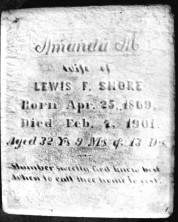 Amanda M
wife of
LEWIS F. SHORE
Born Apr. 25, 1869.
Died Feb. 7, 1901.
Aged 32 Ys 9 Ms & 13 Ds
Slumber sweetly God knew best
When to call thee home to rest.